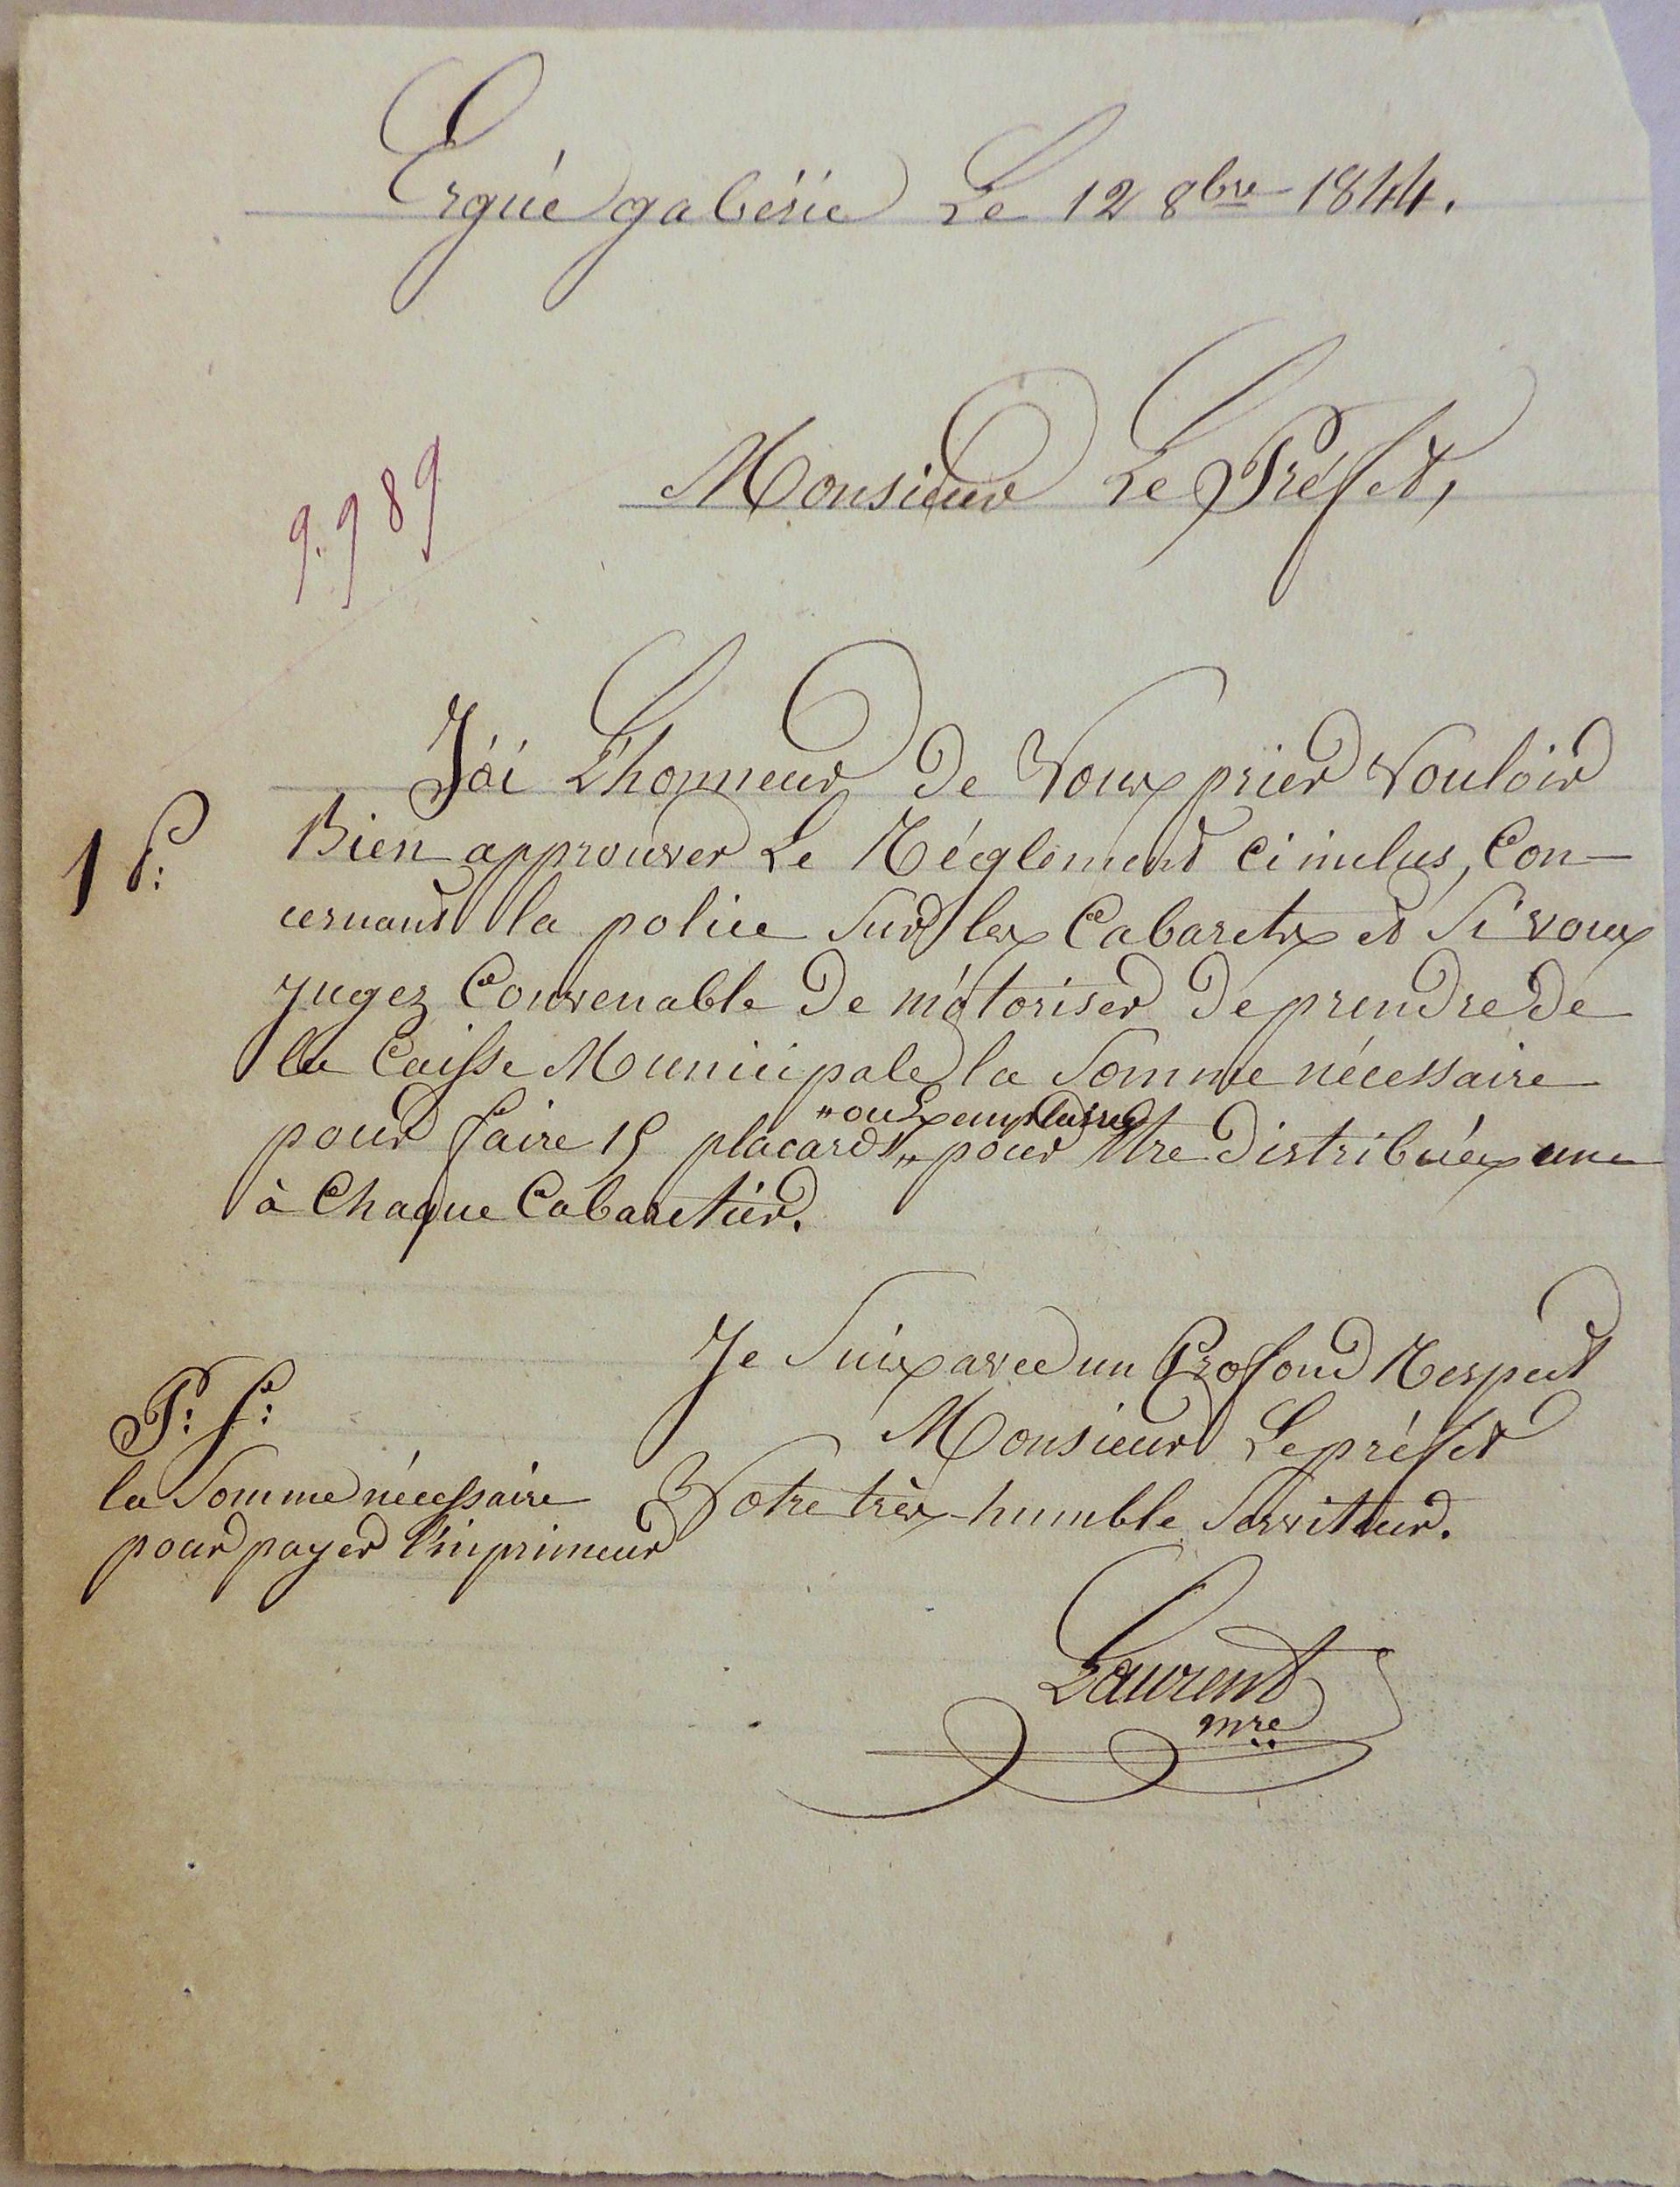 Ergué gabéric Le 12 8bre 1844.
Monsieur Le Préfet,
9.989
J'ai L'honneur de Vous prier Vouloir
Bien approuver Le Réglement ci inclus, Con-
cernant la police Sur les Cabarets et Si vous
jugez Convenable de m'otoriser de prendre de
la Caisse Municipale la Somme nécessaire
"ou Exemplaires
pour faire 15 placards" pour être distribués une
à Chaque Cabaretier.
Je Suis avec un Profond Respect
Monsieur Le préfet
Votre très humble Serviteur.
P: S:
la Somme nécessaire
pour payer l'inprimeur
Laurent
mre